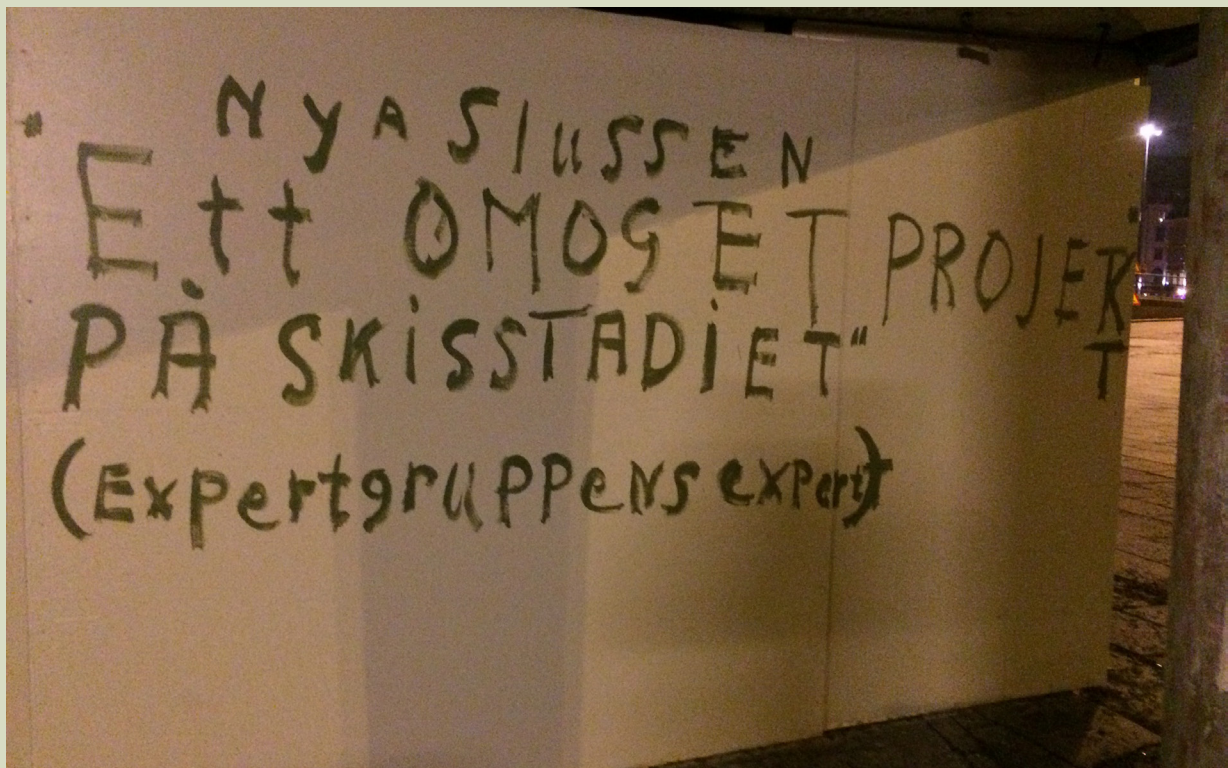 NyA SlussEN
"Ett OMOGET PROJEKT
PÅ SKiSSTADiET"
(Expertgruppens expert)